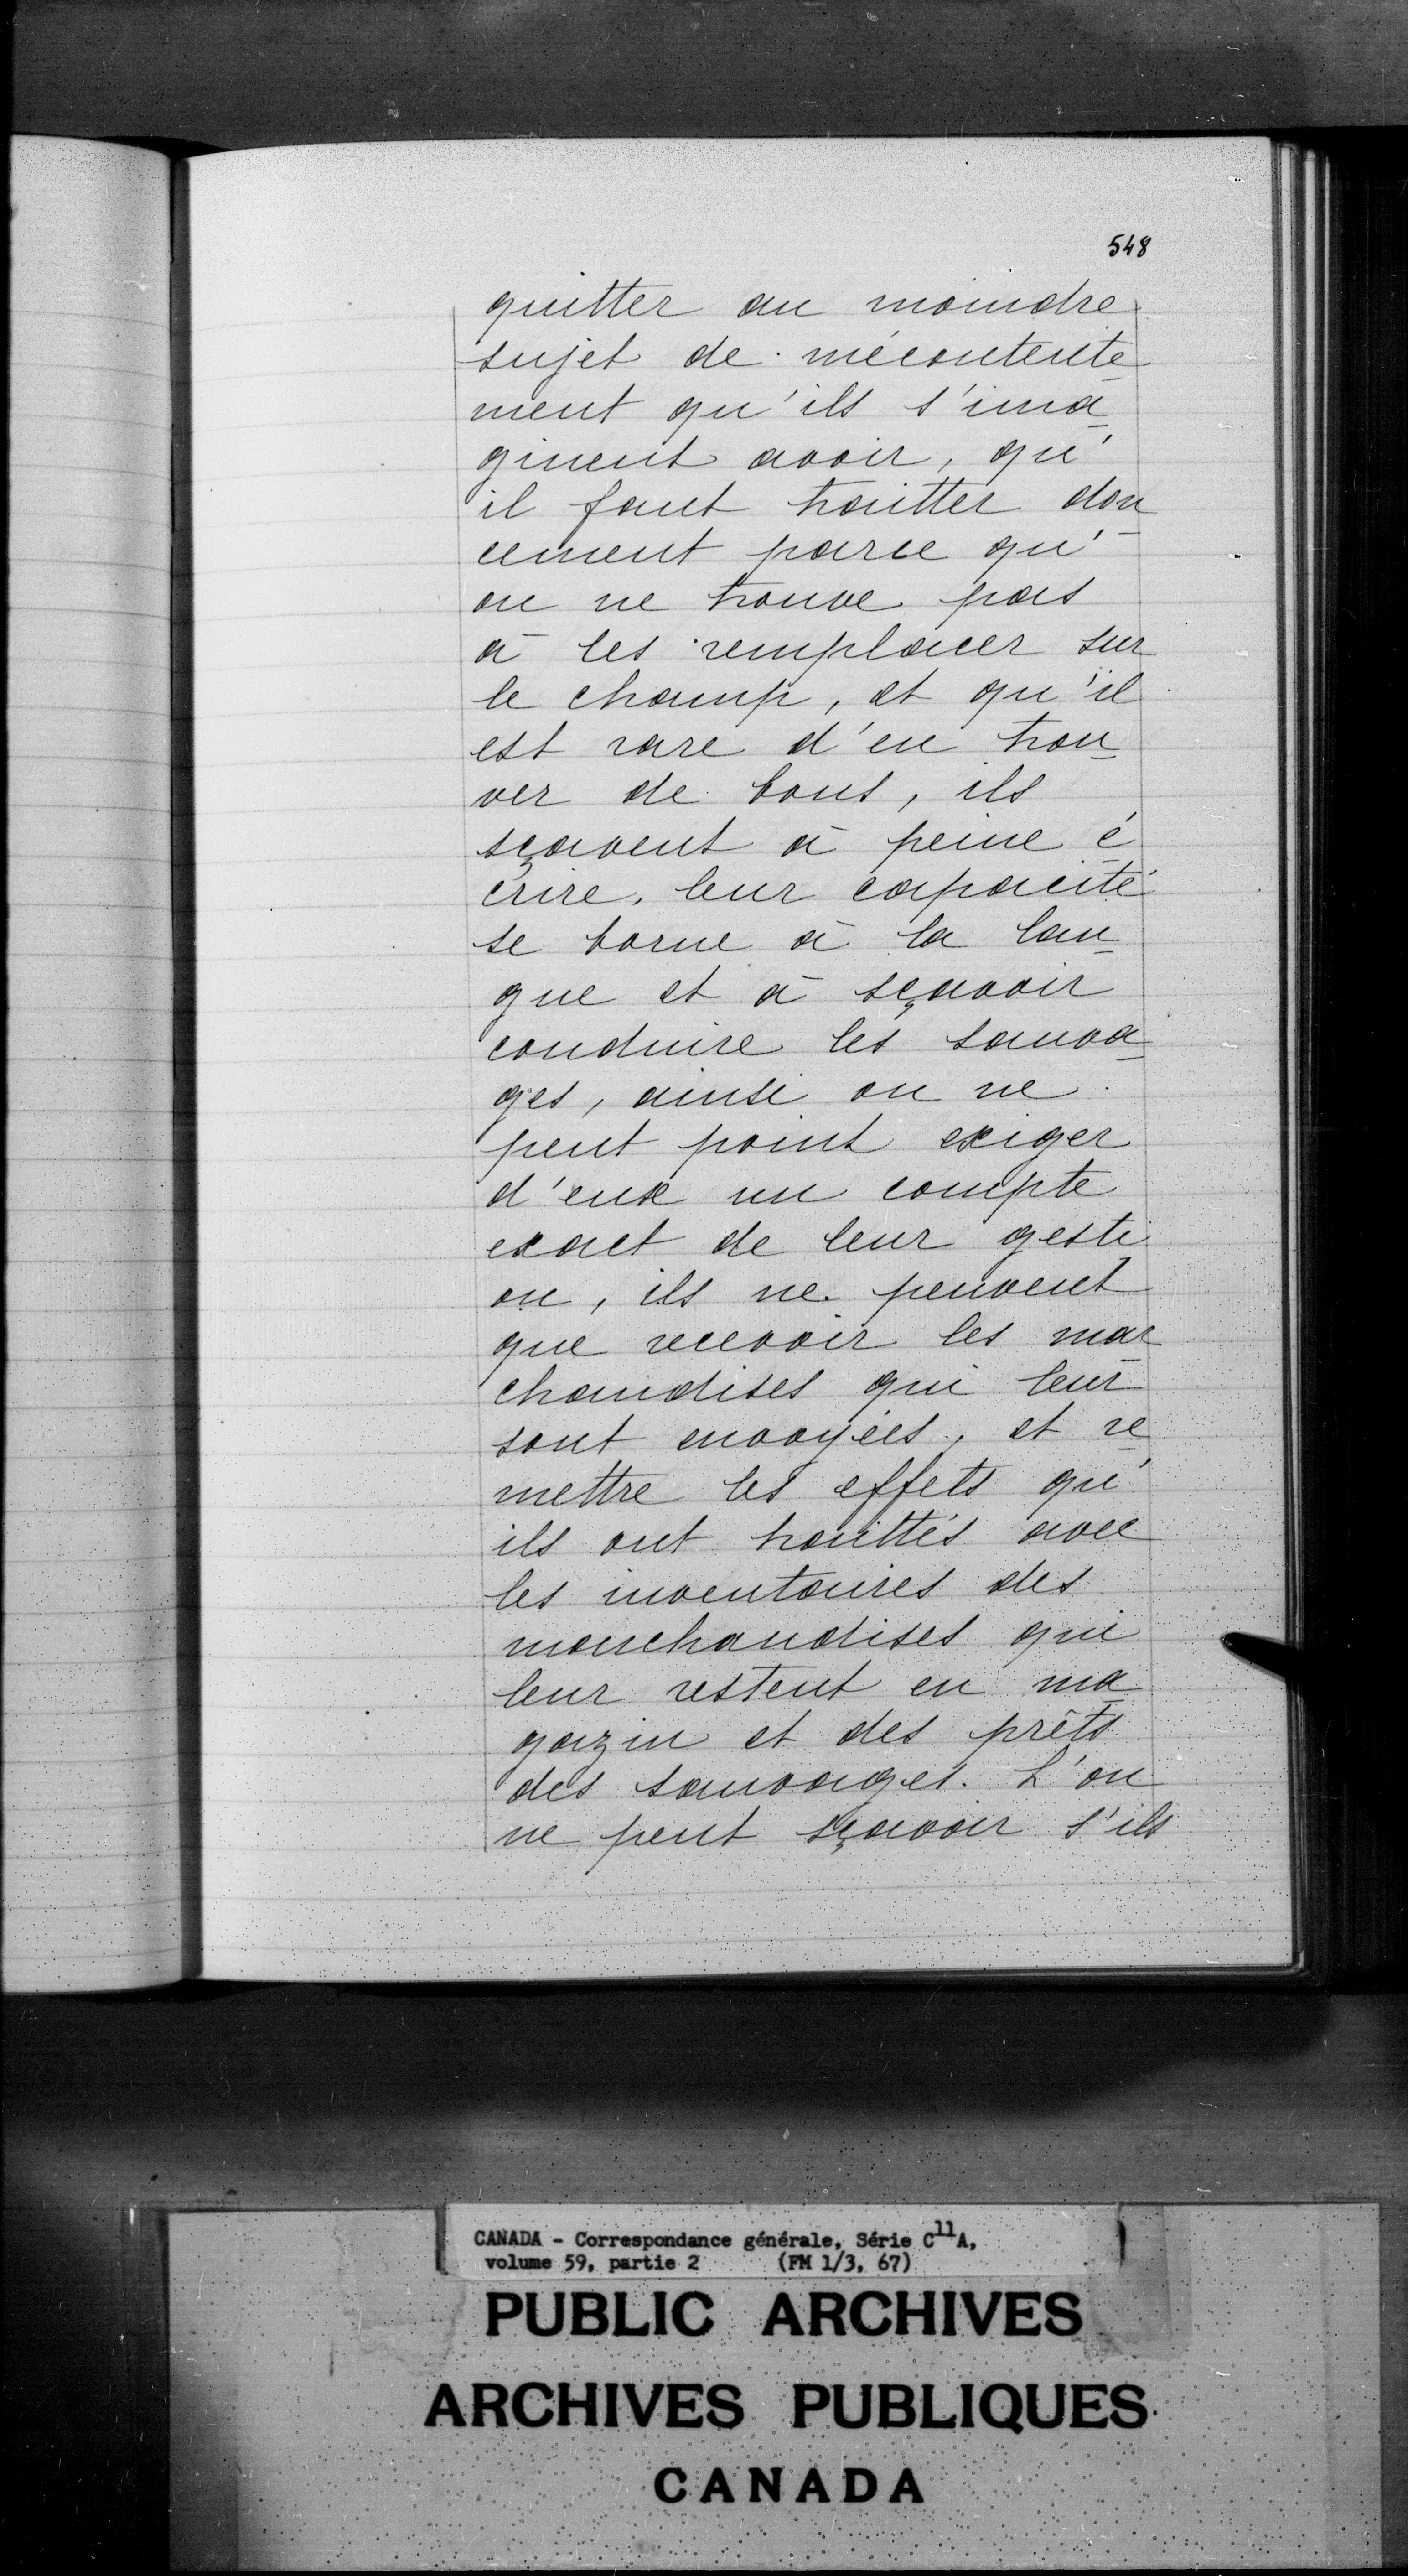 548
quitter au moindre
sujet de mécontente
ment qu'ils s'ima_
ginent avoir, qu'
il faut traitter dou_
cement parce qu'
on ne trouve pas
à les remplacer sur
le champ, et qu'il
est rare d'en trou_
ver de bons, ils
sçavent à peine é
crire, leur capacité
se borne à la lan_
gue et à sçavoir
conduire les sauva_
ges, ainsi on ne
peut point exiger
d'eux un compte
exact de leur gesti
on, ils ne peuvent
que recevoir les mar
chandises qui leur
sont envoyées, et re_
mettre les effets qu'
ils ont traittés avec
les inventaires des
marchandises qui
leur restent en ma_
gazin et des prêts
des sauvages. L'on
ne peut sçavoir s'ils
CANADA - Correspondance générale, Série C11A,
volume 59, partie 2 (FM 1/3, 67)
PUBLIC ARCHIVES
ARCHIVES PUBLIQUES
CANADA